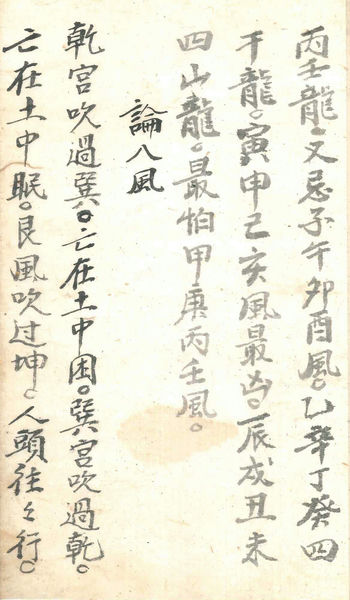 丙壬龍。又忌子午卯酉風。乙辛丁癸四
干龍。寅申巳亥風最凶。辰戌丑未
四山龍。最怕甲庚丙壬風。
論八風
乾宮吹過巽。亡在土中困。巽宮吹過乾。
亡在土中眠。艮風吹过坤。人頭往々行。